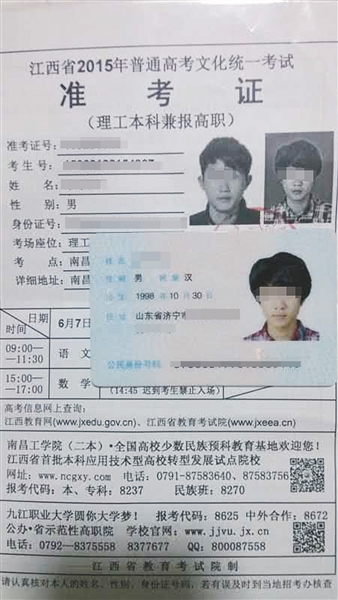 江西省2015年普通高考文化统一考试
准 考 证
(理工本科兼报高职)
准考证号:
考 生 号:
姓 名:
性 别: 男
身份证号:
考场座位: 理工
考 点: 南昌
详细地址: 南昌
男 汉
1998 年 10 月 30 日
住址 山东省济宁市
公民身份号码
日期
时间
6月7
09:00—
—11:30
语 文
15:00—
—17:00
数 学
(14:45 迟到考生禁止入场)
高考信息网上查询:
江西教育网(www.jxedu.gov.cn)、江西省教育考试院(www.jxeea.cn)
南昌工学院(二本)·全国高校少数民族预科教育基地欢迎您!
江西省首批本科应用技术型高校转型发展试点院校
网址: www.ncgxy.com 电话: 0791-87583640、87583756
报考代码: 本、专科: 8237 民族班: 8270
九江职业大学圆你大学梦! 报考代码: 8625 中外合作: 8672
公办·省示范性高职院 学校官网: www.jjvu.jx.cn
电话: 0792—8375558 8377677 QQ: 800087558
江 西 省 教 育 考 试 院 制
请认真核对本人的姓名、性别、身份证号码, 若有误及时到当地招考办核查